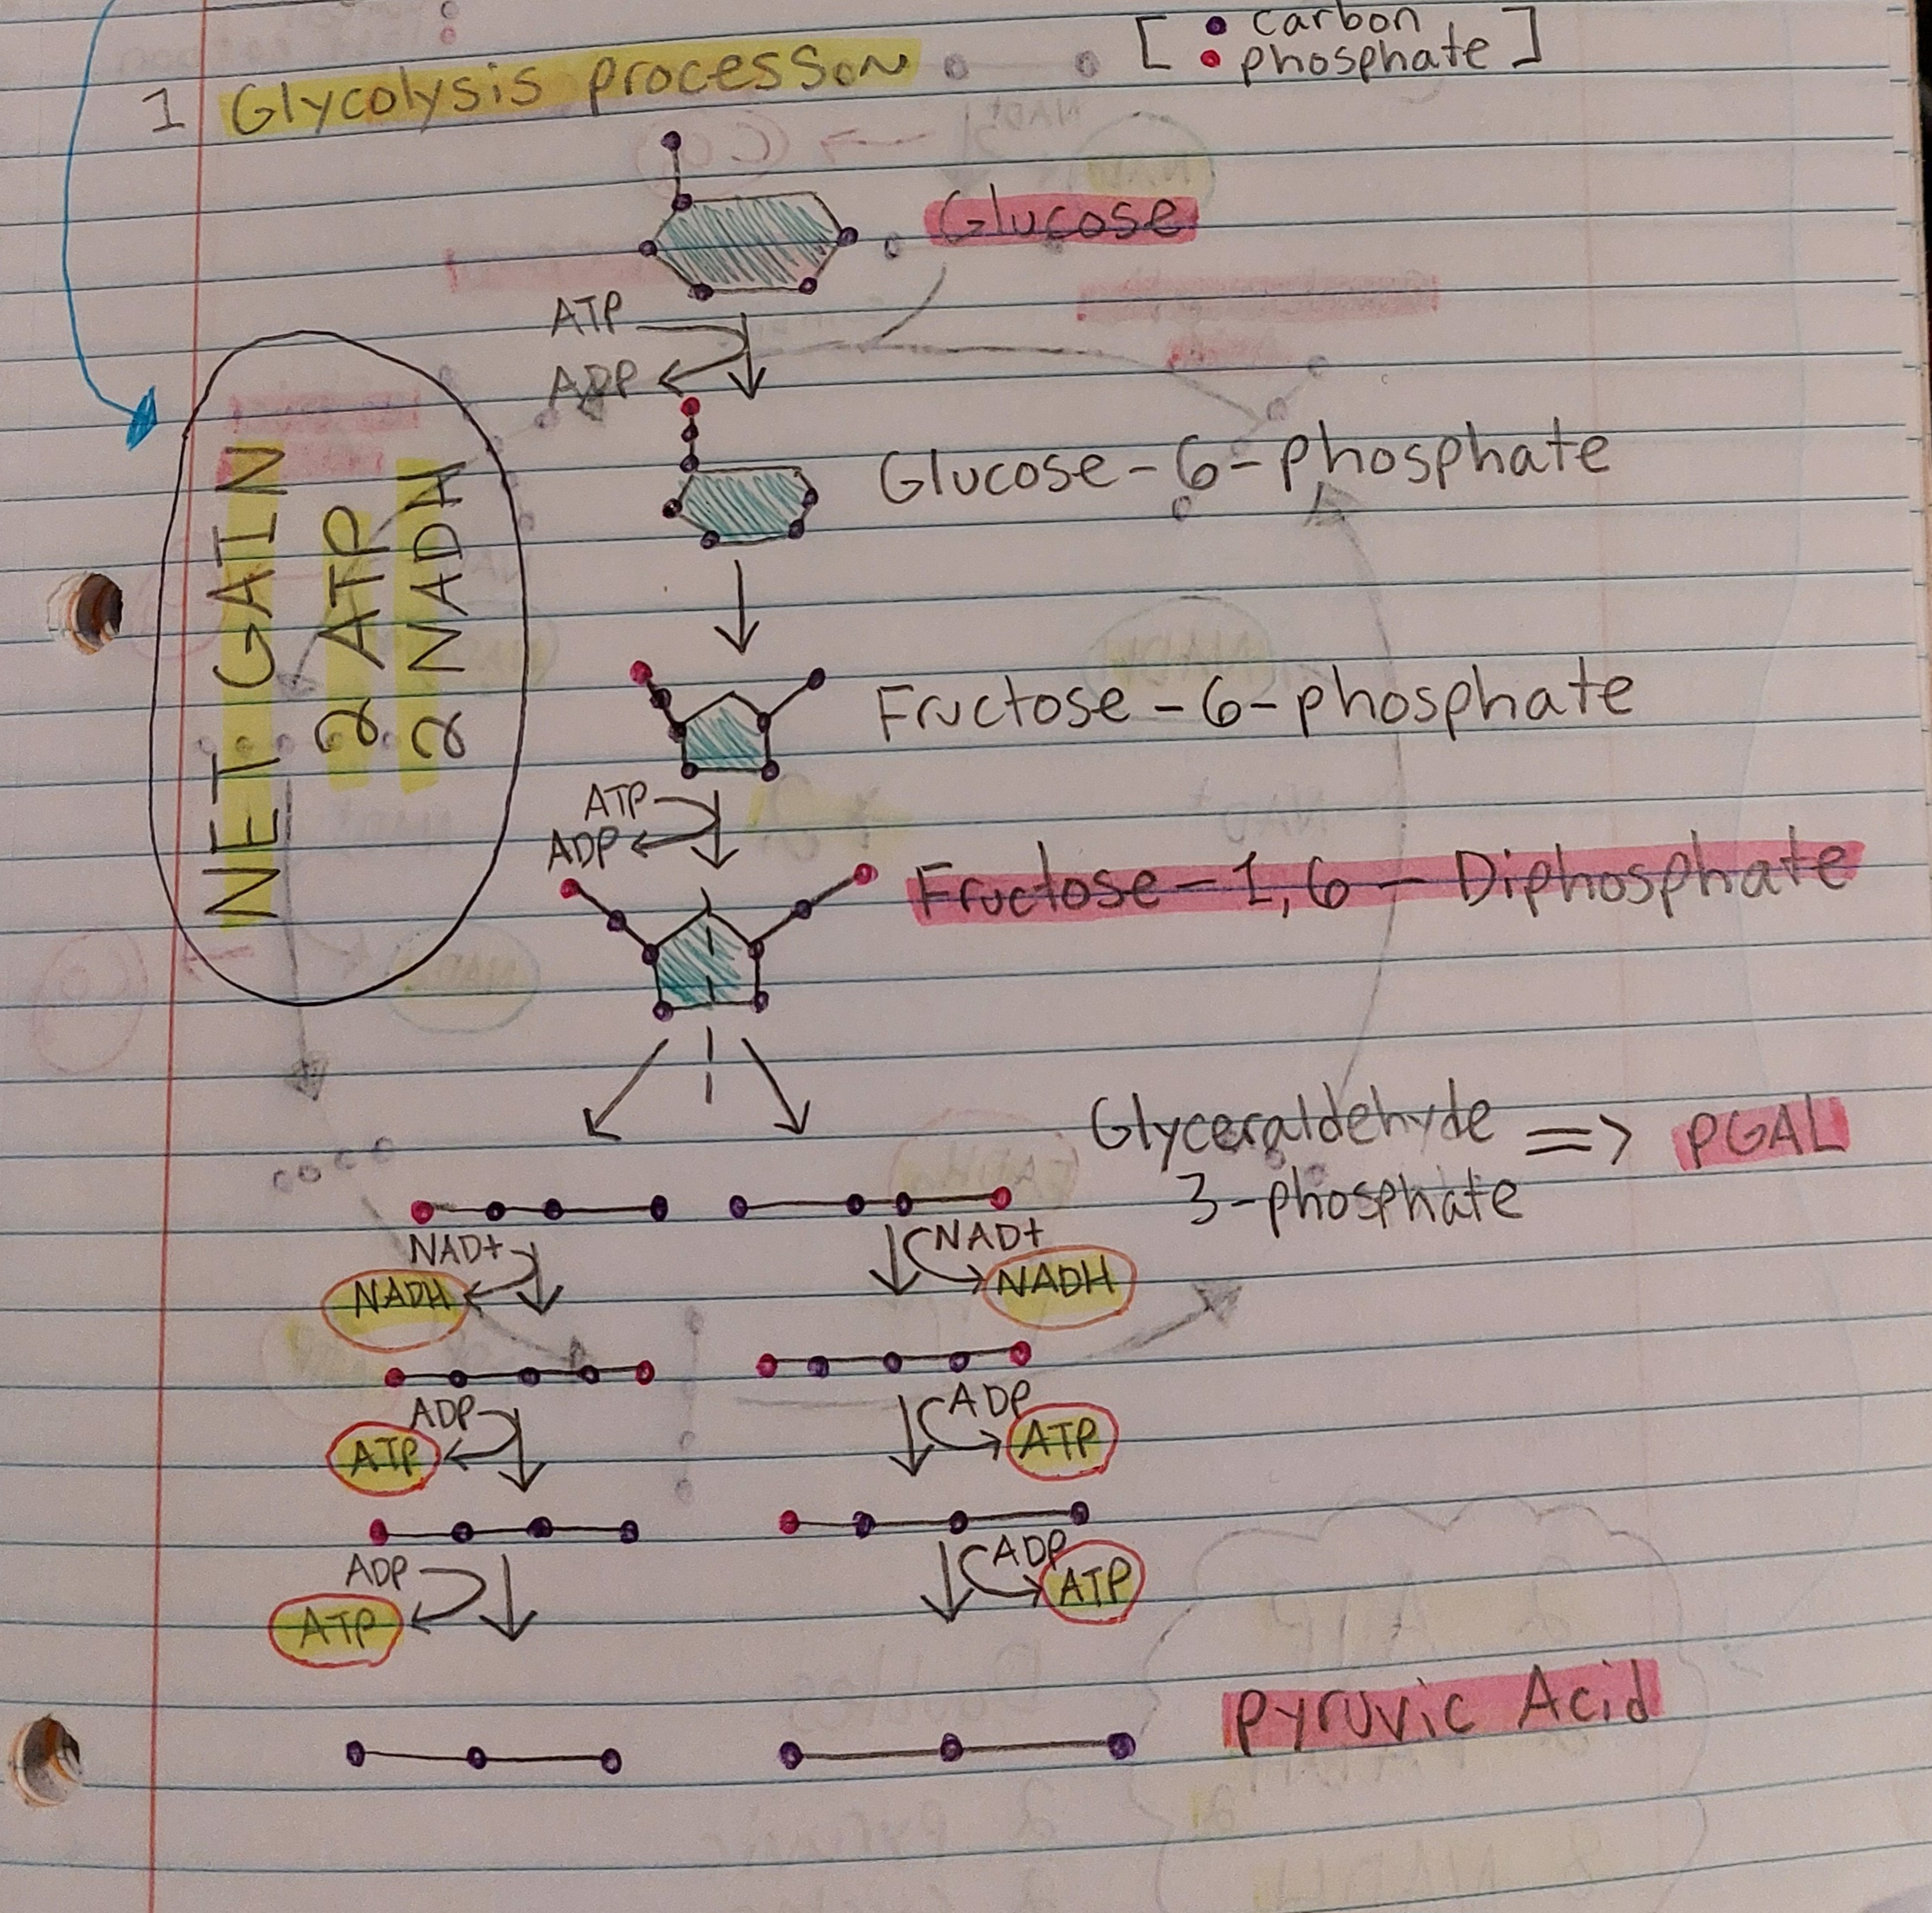 [ • carbon
• phosphate ]
1 Glycolysis processon
Glucose
ATP
ADP
Glucose-6-phosphate
NET GAIN
2 ATP
2 NADH
Fructose-6-phosphate
ATP
ADP
Fructose-1,6-Diphosphate
Glyceraldehyde => PGAL
3-phosphate
NAD+ NAD+
NADH NADH
ADP ADP
ATP ATP
ADP ADP
ATP ATP
pyruvic Acid